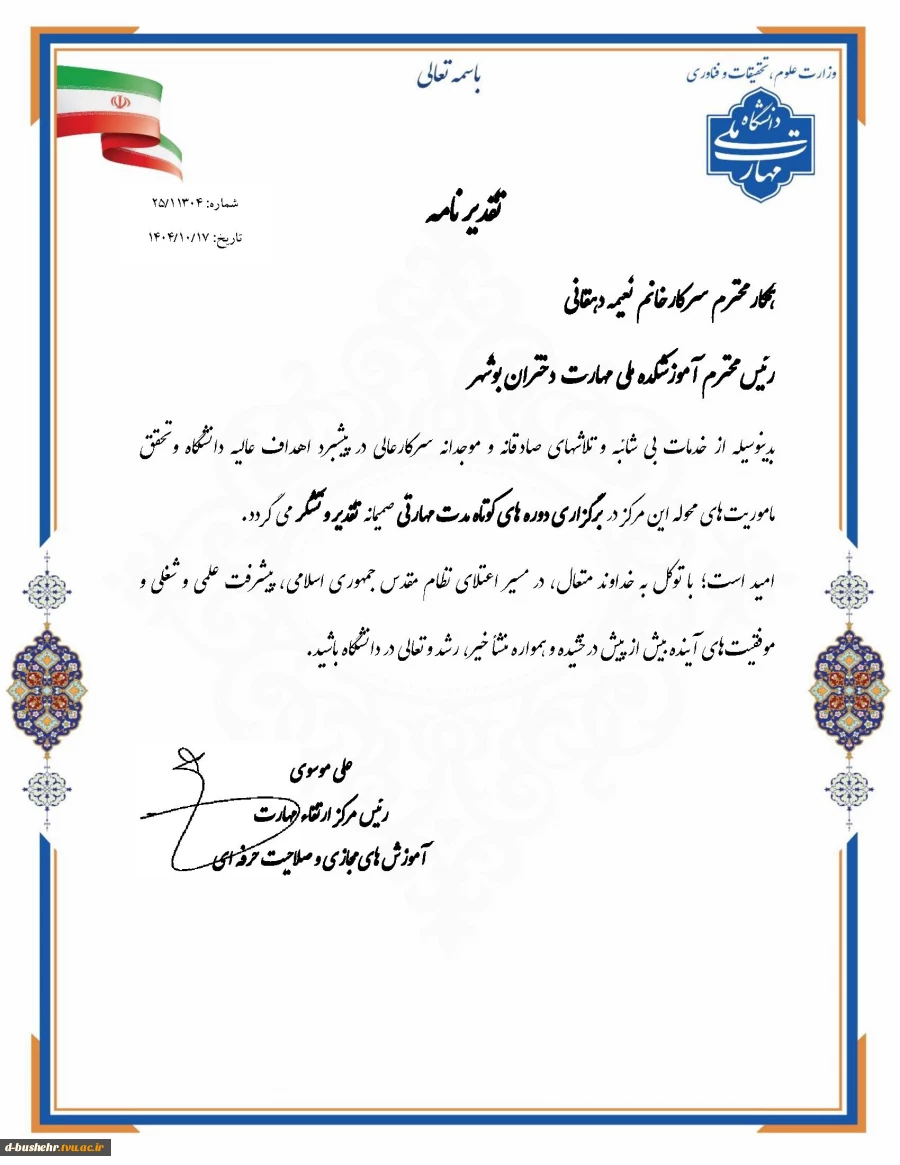 باسمه تعالی
وزارت علوم، تحقیقات و فناوری
دانشگاه ملی مهارت
شماره: ۲۵/۱۱۳۰۴
تاریخ: ۱۴۰۴/۱۰/۱۷
تقدیر نامه
همکار محترم سرکار خانم نعیمه دهقانی
رئیس محترم آموزشکده ملی مهارت دختران بوشهر
بدینوسیله از خدمات بی شائبه و تلاشهای صادقانه و موجدانه سرکارعالی در پیشبرد اهداف عالیه دانشگاه و تحقق
ماموریت‌های محوله این مرکز در برگزاری دوره های کوتاه مدت مهارتی صمیمانه تقدیر و تشکر می گردد.
امید است؛ با توکل به خداوند متعال، در مسیر اعتلای نظام مقدس جمهوری اسلامی، پیشرفت علمی و شغلی و
موفقیت‌های آینده بیش از پیش درخشیده و همواره منشأ خیر، رشد و تعالی در دانشگاه باشید.
علی موسوی
رئیس مرکز ارتقاء مهارت
آموزش های مجازی و صلاحیت حرفه ای
d-bushehr.tvu.ac.ir